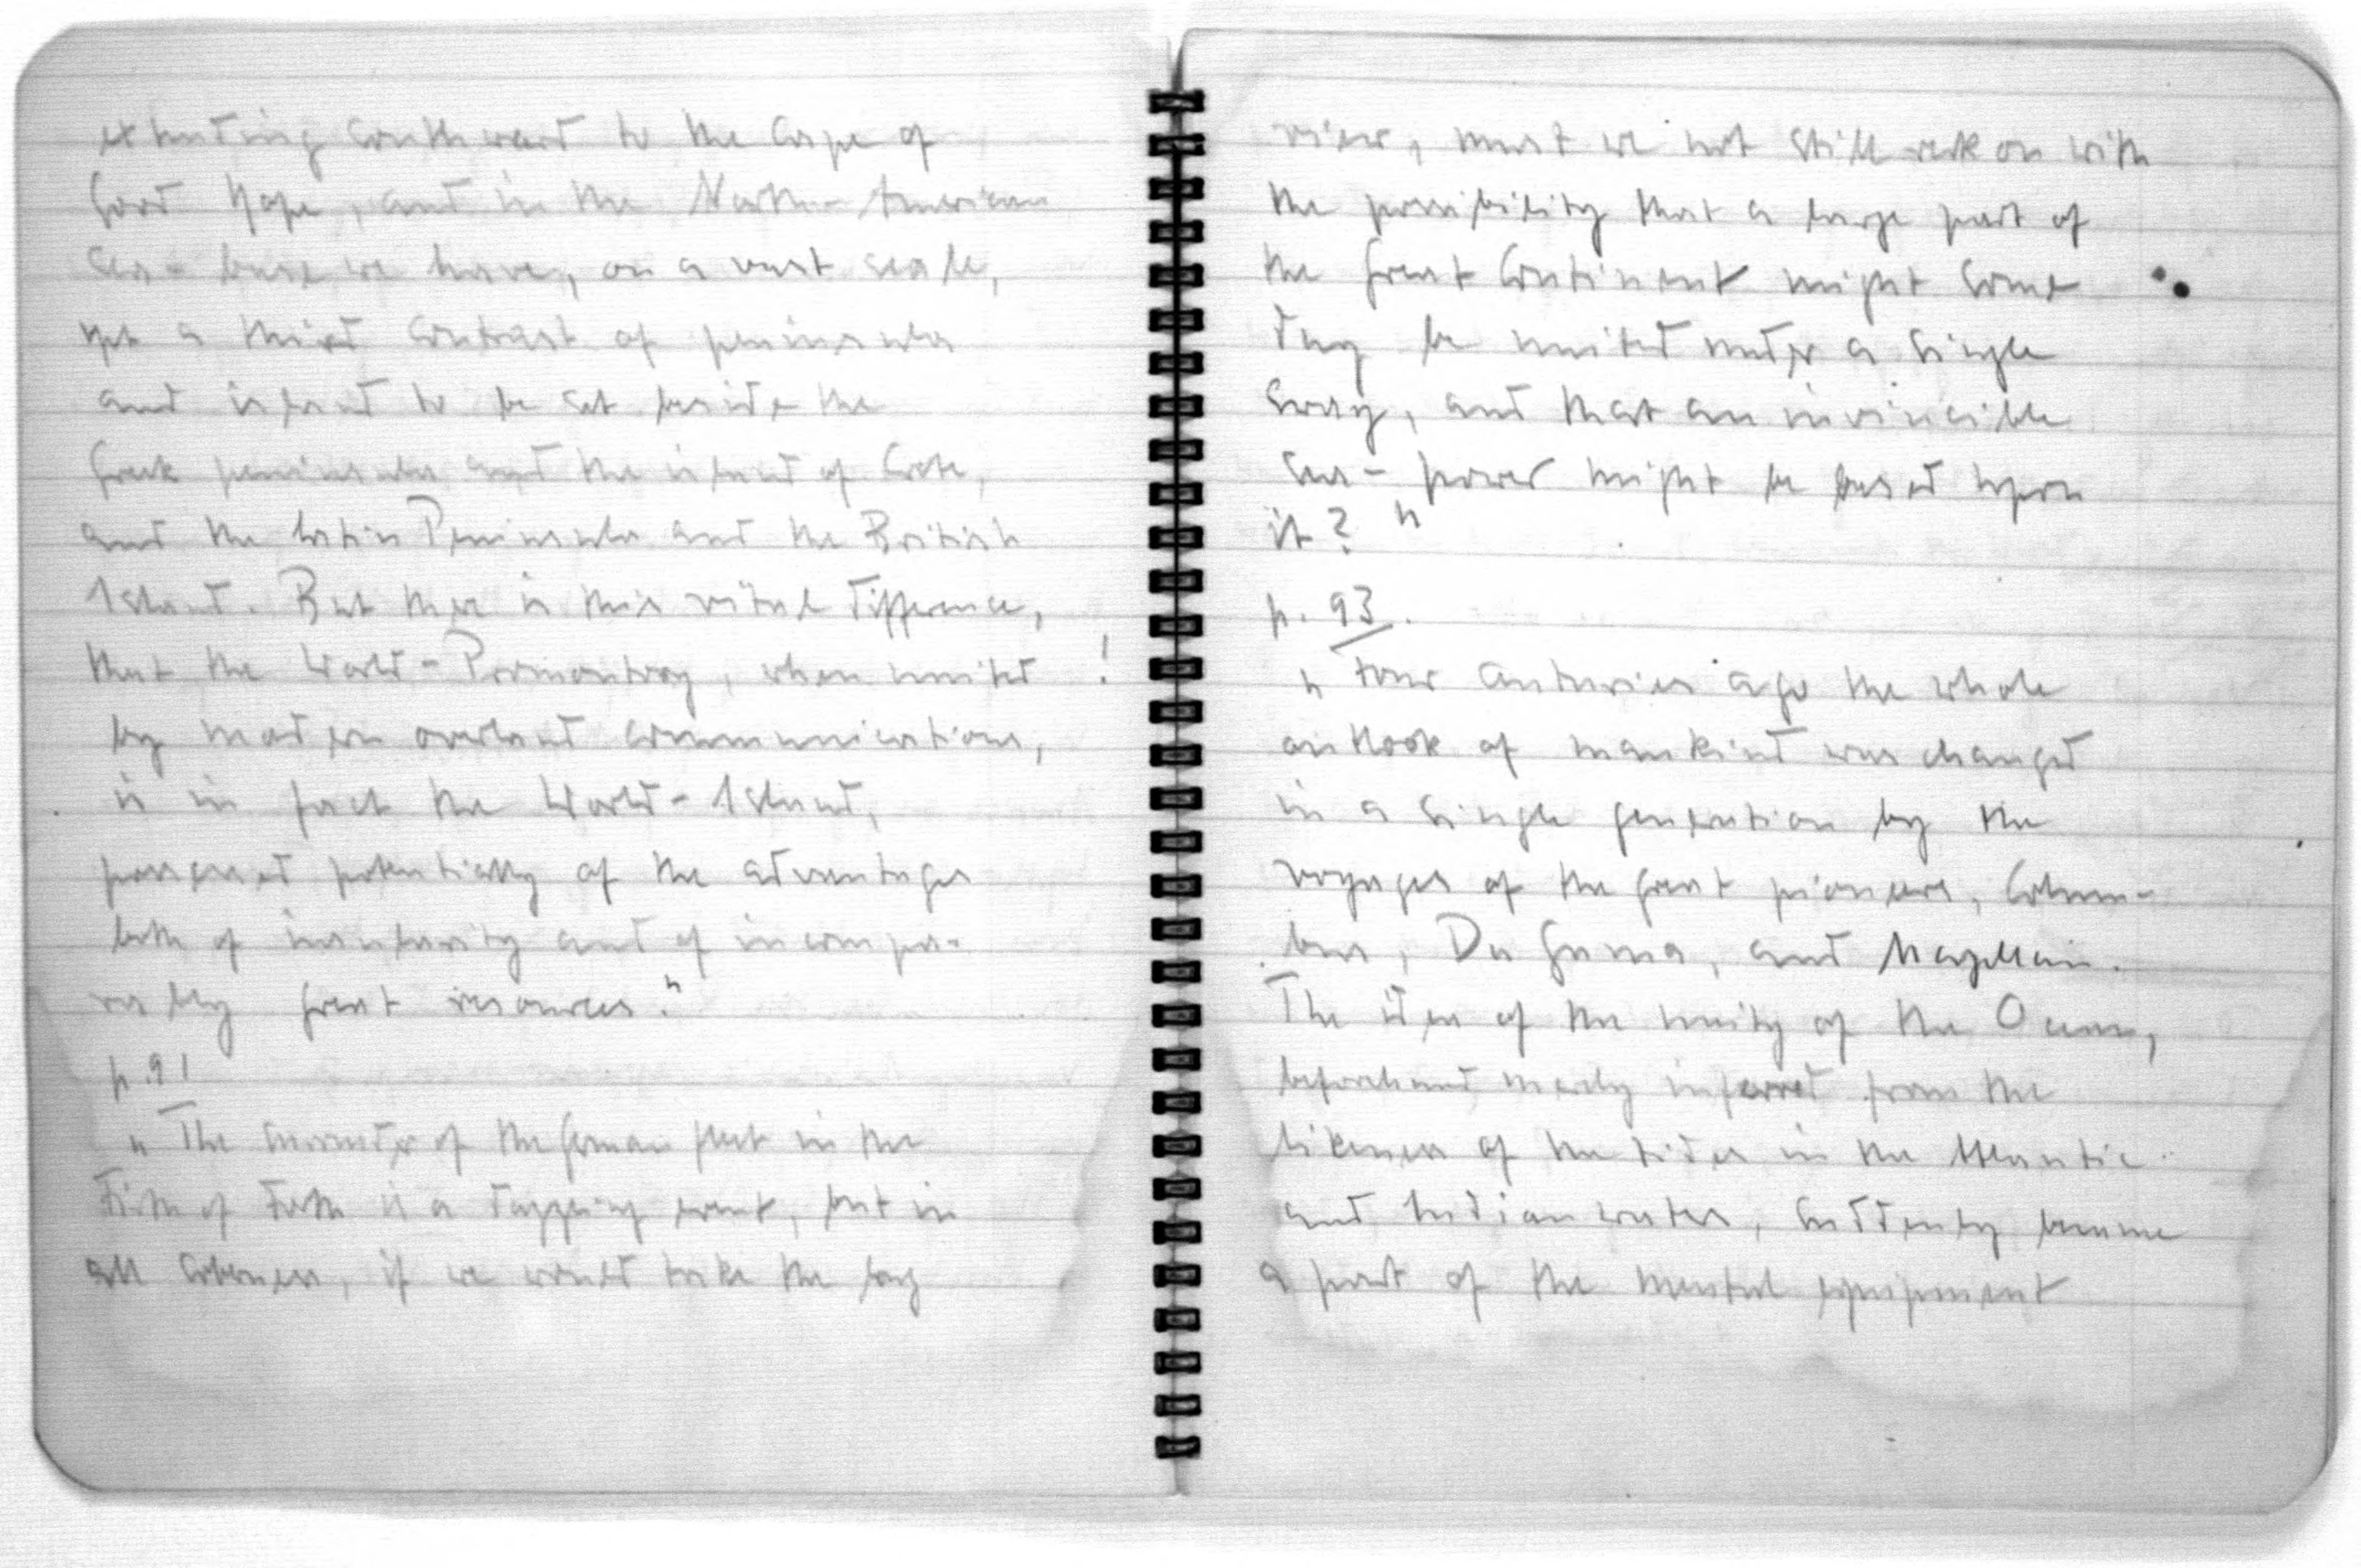 extending southward to the Cape of
Good Hope, and in the North-American
sea-base we have, on a vast scale,
yet a third contrast of peninsula
and island to be set beside the
Greek peninsula and the island of Crete,
and the Latin Peninsula and the British
Island. But there is this vital difference,
that the World-Promontory, when united !
by modern overland communications,
is in fact the World-Island,
possessed potentially of the advantages
both of insularity and of incompa-
rably great resources."
p. 91
" The surrender of the German fleet in the
Firth of Forth is a dazzling event, but in
all soberness, if we would take the long
view, must we not still reckon with
the possibility that a large part of
the Great Continent might some
day be united under a single
sway, and that an invincible
sea-power might be based upon
it? "
p. 93.
" Four centuries ago the whole
outlook of mankind was changed
in a single generation by the
voyages of the great pioneers, Colum-
bus, Da Gama, and Magellan.
The idea of the unity of the Ocean,
beforehand merely inferred from the
likeness of the tides in the Atlantic
and Indian waters, suddenly became
a part of the mental equipment